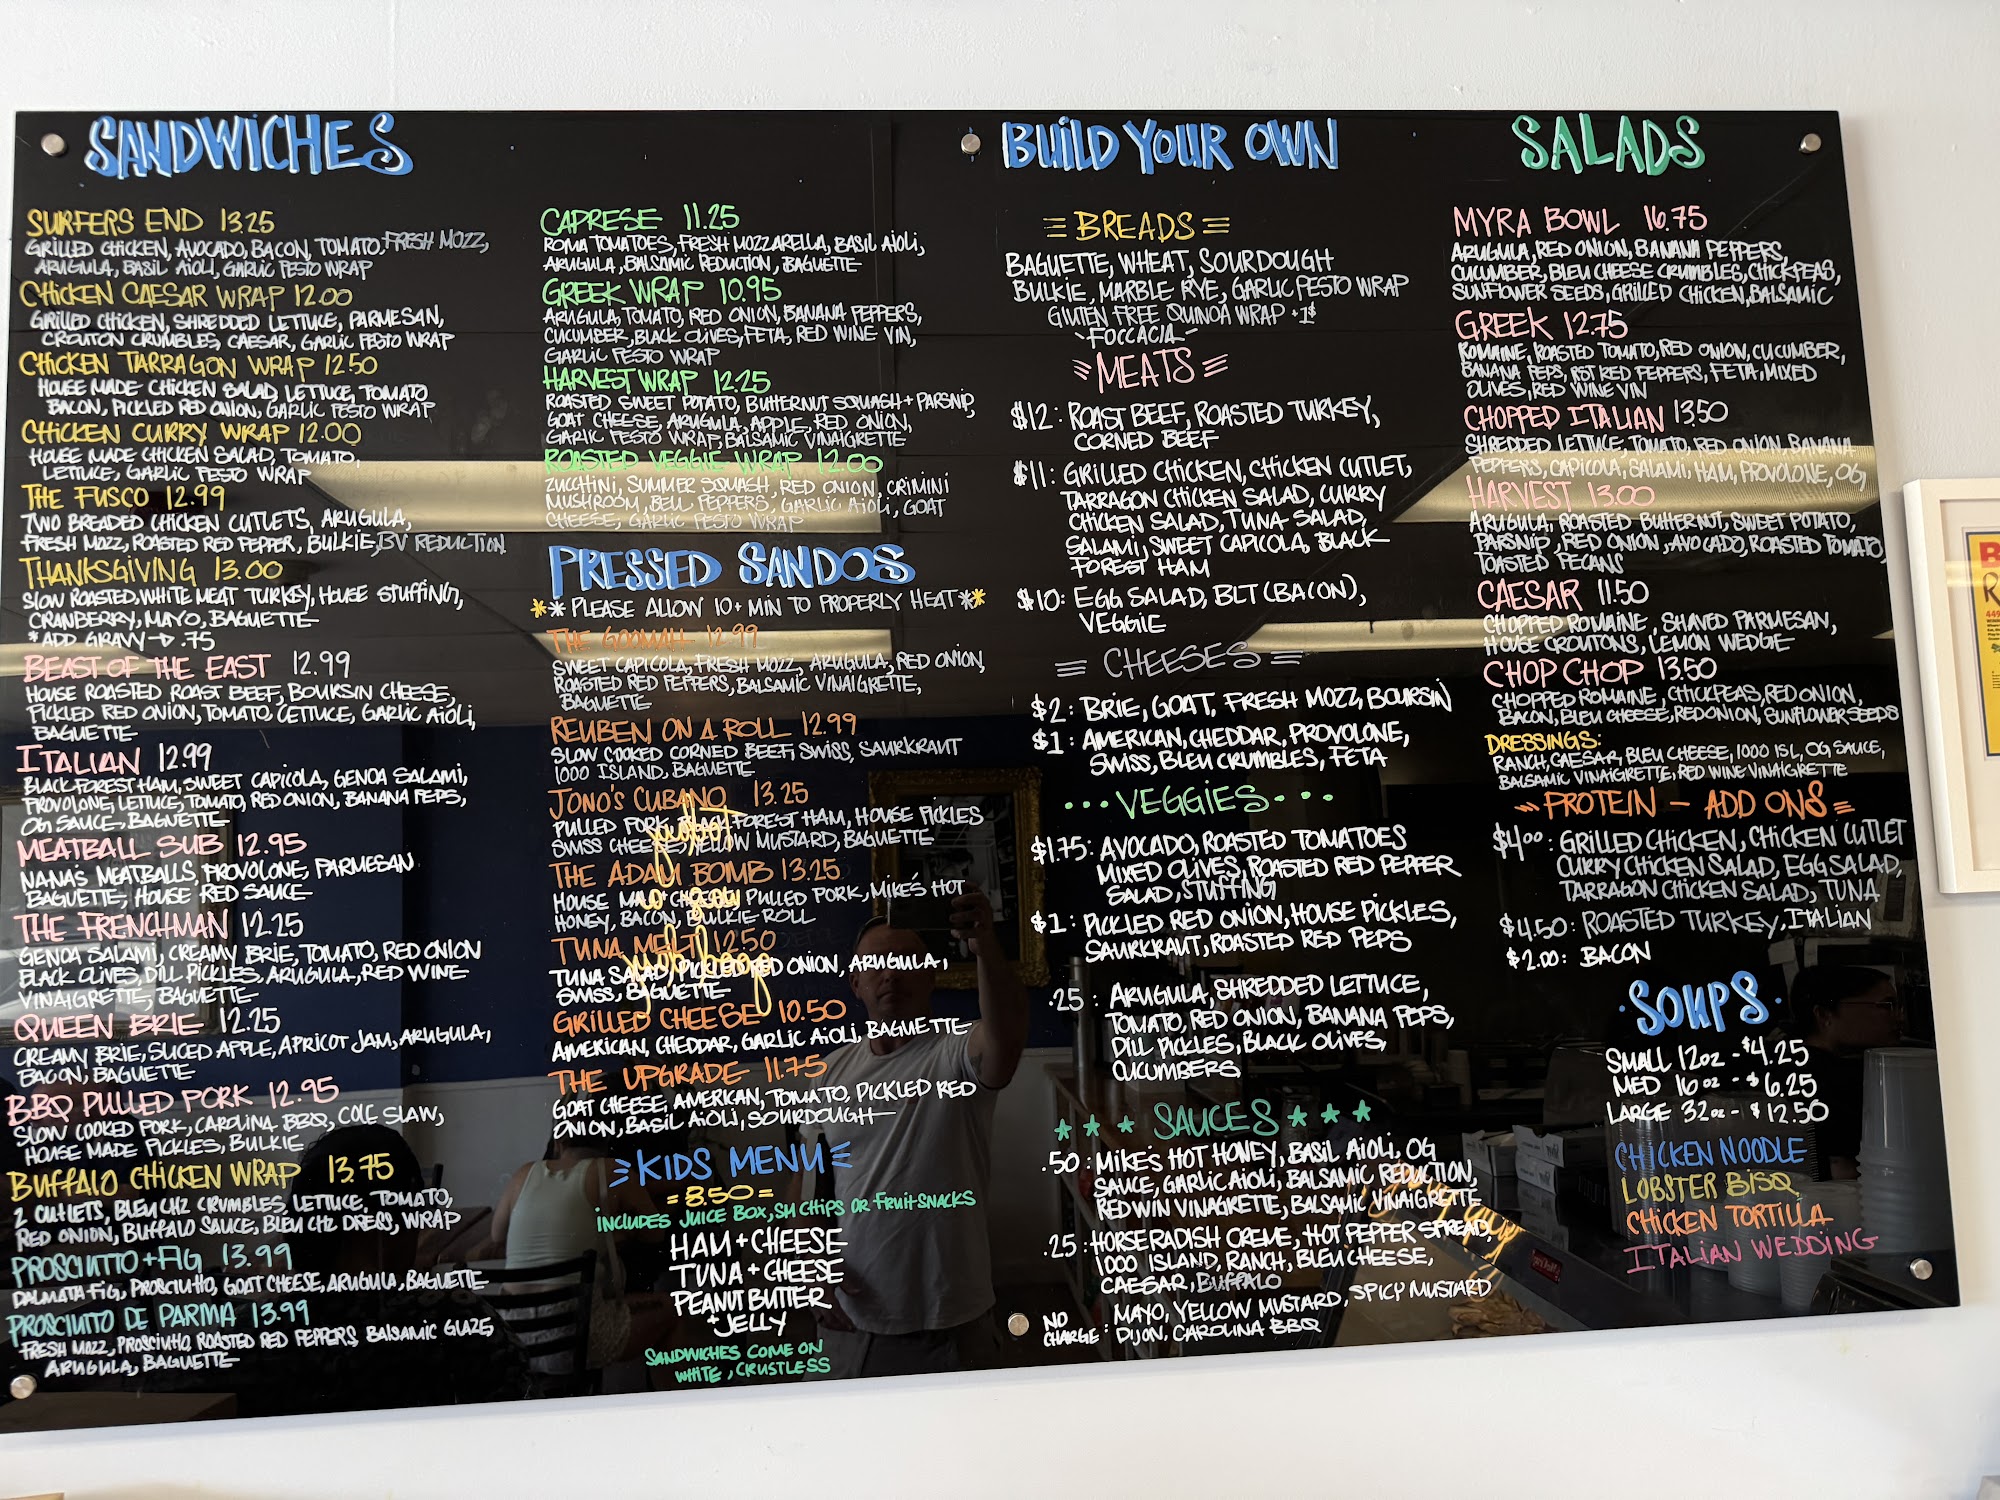 SANDWICHES
SURFERS END 13.25
GRILLED CHICKEN, AVOCADO, BACON, TOMATO, FRESH MOZZ,
ARUGULA, BASIL AIOLI, GARLIC PESTO WRAP
CHICKEN CAESAR WRAP 12.00
GRILLED CHICKEN, SHREDDED LETTUCE, PARMESAN,
CROUTON CRUMBLES, CAESAR, GARLIC PESTO WRAP
CHICKEN TARRAGON WRAP 12.50
HOUSE MADE CHICKEN SALAD, LETTUCE, TOMATO
BACON, PICKLED RED ONION, GARLIC PESTO WRAP
CHICKEN CURRY WRAP 12.00
HOUSE MADE CHICKEN SALAD, TOMATO,
LETTUCE, GARLIC PESTO WRAP
THE FUSCO 12.99
TWO BREADED CHICKEN CUTLETS, ARUGULA,
FRESH MOZZ, ROASTED RED PEPPER, BULKIE, BV REDUCTION
THANKSGIVING 13.00
SLOW ROASTED, WHITE MEAT TURKEY, HOUSE STUFFING,
CRANBERRY, MAYO, BAGUETTE
*ADD GRAVY → .75
BEAST OF THE EAST 12.99
HOUSE ROASTED ROAST BEEF, BOURSIN CHEESE,
PICKLED RED ONION, TOMATO, LETTUCE, GARLIC AIOLI,
BAGUETTE
ITALIAN 12.99
BLACK FOREST HAM, SWEET CAPICOLA, GENOA SALAMI,
PROVOLONE, LETTUCE, TOMATO, RED ONION, BANANA PEPS,
OG SAUCE, BAGUETTE
MEATBALL SUB 12.95
NANA'S MEATBALLS, PROVOLONE, PARMESAN
BAGUETTE, HOUSE RED SAUCE
THE FRENCHMAN 12.25
GENOA SALAMI, CREAMY BRIE, TOMATO, RED ONION
BLACK OLIVES, DILL PICKLES, ARUGULA, RED WINE
VINAIGRETTE, BAGUETTE
QUEEN BRIE 12.25
CREAMY BRIE, SLICED APPLE, APRICOT JAM, ARUGULA,
BACON, BAGUETTE
BBQ PULLED PORK 12.95
SLOW COOKED PORK, CAROLINA BBQ, COLE SLAW,
HOUSE MADE PICKLES, BULKIE
BUFFALO CHICKEN WRAP 13.75
2 CUTLETS, BLEU CHZ CRUMBLES, LETTUCE, TOMATO,
RED ONION, BUFFALO SAUCE, BLEU CHZ DRESS, WRAP
PROSCIUTTO + FIG 13.99
DALMATA FIG, PROSCIUTTO, GOAT CHEESE, ARUGULA, BAGUETTE
PROSCIUTTO DE PARMA 13.99
FRESH MOZZ, PROSCIUTTO, ROASTED RED PEPPERS, BALSAMIC GLAZE,
ARUGULA, BAGUETTE
CAPRESE 11.25
ROMA TOMATOES, FRESH MOZZARELLA, BASIL AIOLI,
ARUGULA, BALSAMIC REDUCTION, BAGUETTE
GREEK WRAP 10.95
ARUGULA, TOMATO, RED ONION, BANANA PEPPERS,
CUCUMBER, BLACK OLIVES, FETA, RED WINE VIN,
GARLIC PESTO WRAP
HARVEST WRAP 12.25
ROASTED SWEET POTATO, BUTTERNUT SQUASH + PARSNIP,
GOAT CHEESE, ARUGULA, APPLE, RED ONION,
GARLIC PESTO WRAP, BALSAMIC VINAIGRETTE
ROASTED VEGGIE WRAP 12.00
ZUCCHINI, SUMMER SQUASH, RED ONION, CRIMINI
MUSHROOM, BELL PEPPERS, GARLIC AIOLI, GOAT
CHEESE, GARLIC PESTO WRAP
PRESSED SANDOS
** PLEASE ALLOW 10+ MIN TO PROPERLY HEAT **
THE 12.99
SWEET CAPICOLA, FRESH MOZZ, ARUGULA, RED ONION,
ROASTED RED PEPPERS, BALSAMIC VINAIGRETTE,
BAGUETTE
REUBEN ON A ROLL 12.99
SLOW COOKED CORNED BEEF, SWISS, SAURKRAUT
1000 ISLAND, BAGUETTE
JONO'S CUBANO 13.25
PULLED PORK, BLACK FOREST HAM, HOUSE PICKLES
SWISS CHEESE, YELLOW MUSTARD, BAGUETTE
THE ADAM BOMB 13.25
HOUSE MAC + CHEESE, PULLED PORK, MIKE'S HOT
HONEY, BACON, BULKIE ROLL
TUNA MELT 12.50
TUNA SALAD, PICKLED RED ONION, ARUGULA,
SWISS, BAGUETTE
GRILLED CHEESE 10.50
AMERICAN, CHEDDAR, GARLIC AIOLI, BAGUETTE
THE UPGRADE 11.75
GOAT CHEESE, AMERICAN, TOMATO, PICKLED RED
ONION, BASIL AIOLI, SOURDOUGH
KIDS MENU
= 8.50 =
INCLUDES JUICE BOX, SM CHIPS OR FRUIT SNACKS
HAM + CHEESE
TUNA + CHEESE
PEANUT BUTTER
+ JELLY
SANDWICHES COME ON
WHITE, CRUSTLESS
BUILD YOUR OWN
BREADS
BAGUETTE, WHEAT, SOURDOUGH
BULKIE, MARBLE RYE, GARLIC PESTO WRAP
GLUTEN FREE QUINOA WRAP +1$
- FOCCACIA -
MEATS
$12: ROAST BEEF, ROASTED TURKEY,
CORNED BEEF
$11: GRILLED CHICKEN, CHICKEN CUTLET,
TARRAGON CHICKEN SALAD, CURRY
CHICKEN SALAD, TUNA SALAD,
SALAMI, SWEET CAPICOLA, BLACK
FOREST HAM
$10: EGG SALAD, BLT (BACON),
VEGGIE
CHEESES
$2: BRIE, GOAT, FRESH MOZZ, BOURSIN
$1: AMERICAN, CHEDDAR, PROVOLONE,
SWISS, BLEU CRUMBLES, FETA
VEGGIES
$1.75: AVOCADO, ROASTED TOMATOES
MIXED OLIVES, ROASTED RED PEPPER
SALAD, STUFFING
$1: PICKLED RED ONION, HOUSE PICKLES,
SAURKRAUT, ROASTED RED PEPS
.25: ARUGULA, SHREDDED LETTUCE,
TOMATO, RED ONION, BANANA PEPS,
DILL PICKLES, BLACK OLIVES,
CUCUMBERS
SAUCES
.50: MIKE'S HOT HONEY, BASIL AIOLI, OG
SAUCE, GARLIC AIOLI, BALSAMIC REDUCTION,
RED WIN VINAGRETTE, BALSAMIC VINAIGRETTE
.25: HORSERADISH CREME, HOT PEPPER SPREAD,
1000 ISLAND, RANCH, BLEU CHEESE,
CAESAR, BUFFALO
NO CHARGE: MAYO, YELLOW MUSTARD, SPICY MUSTARD
DIJON, CAROLINA BBQ
SALADS
MYRA BOWL 16.75
ARUGULA, RED ONION, BANANA PEPPERS,
CUCUMBER, BLEU CHEESE CRUMBLES, CHICKPEAS,
SUNFLOWER SEEDS, GRILLED CHICKEN, BALSAMIC
GREEK 12.75
ROMAINE, ROASTED TOMATO, RED ONION, CUCUMBER,
BANANA PEPS, RST RED PEPPERS, FETA, MIXED
OLIVES, RED WINE VIN
CHOPPED ITALIAN 13.50
SHREDDED LETTUCE, TOMATO, RED ONION, BANANA
PEPPERS, CAPICOLA, SALAMI, HAM, PROVOLONE, OG
HARVEST 13.00
ARUGULA, ROASTED BUTTERNUT, SWEET POTATO,
PARSNIP, RED ONION, AVOCADO, ROASTED TOMATO,
TOASTED PECANS
CAESAR 11.50
CHOPPED ROMAINE, SHAVED PARMESAN,
HOUSE CROUTONS, LEMON WEDGE
CHOP CHOP 13.50
CHOPPED ROMAINE, CHICKPEAS, RED ONION,
BACON, BLEU CHEESE, RED ONION, SUNFLOWER SEEDS
DRESSINGS:
RANCH, CAESAR, BLEU CHEESE, 1000 ISL, OG SAUCE,
BALSAMIC VINAIGRETTE, RED WINE VINAIGRETTE
PROTEIN - ADD ONS
$4.00: GRILLED CHICKEN, CHICKEN CUTLET
CURRY CHICKEN SALAD, EGG SALAD,
TARRAGON CHICKEN SALAD, TUNA
$4.50: ROASTED TURKEY, ITALIAN
$2.00: BACON
SOUPS
SMALL 12oz - $4.25
MED 16oz - $6.25
LARGE 32oz - $12.50
CHICKEN NOODLE
LOBSTER BISQ
CHICKEN TORTILLA
ITALIAN WEDDING